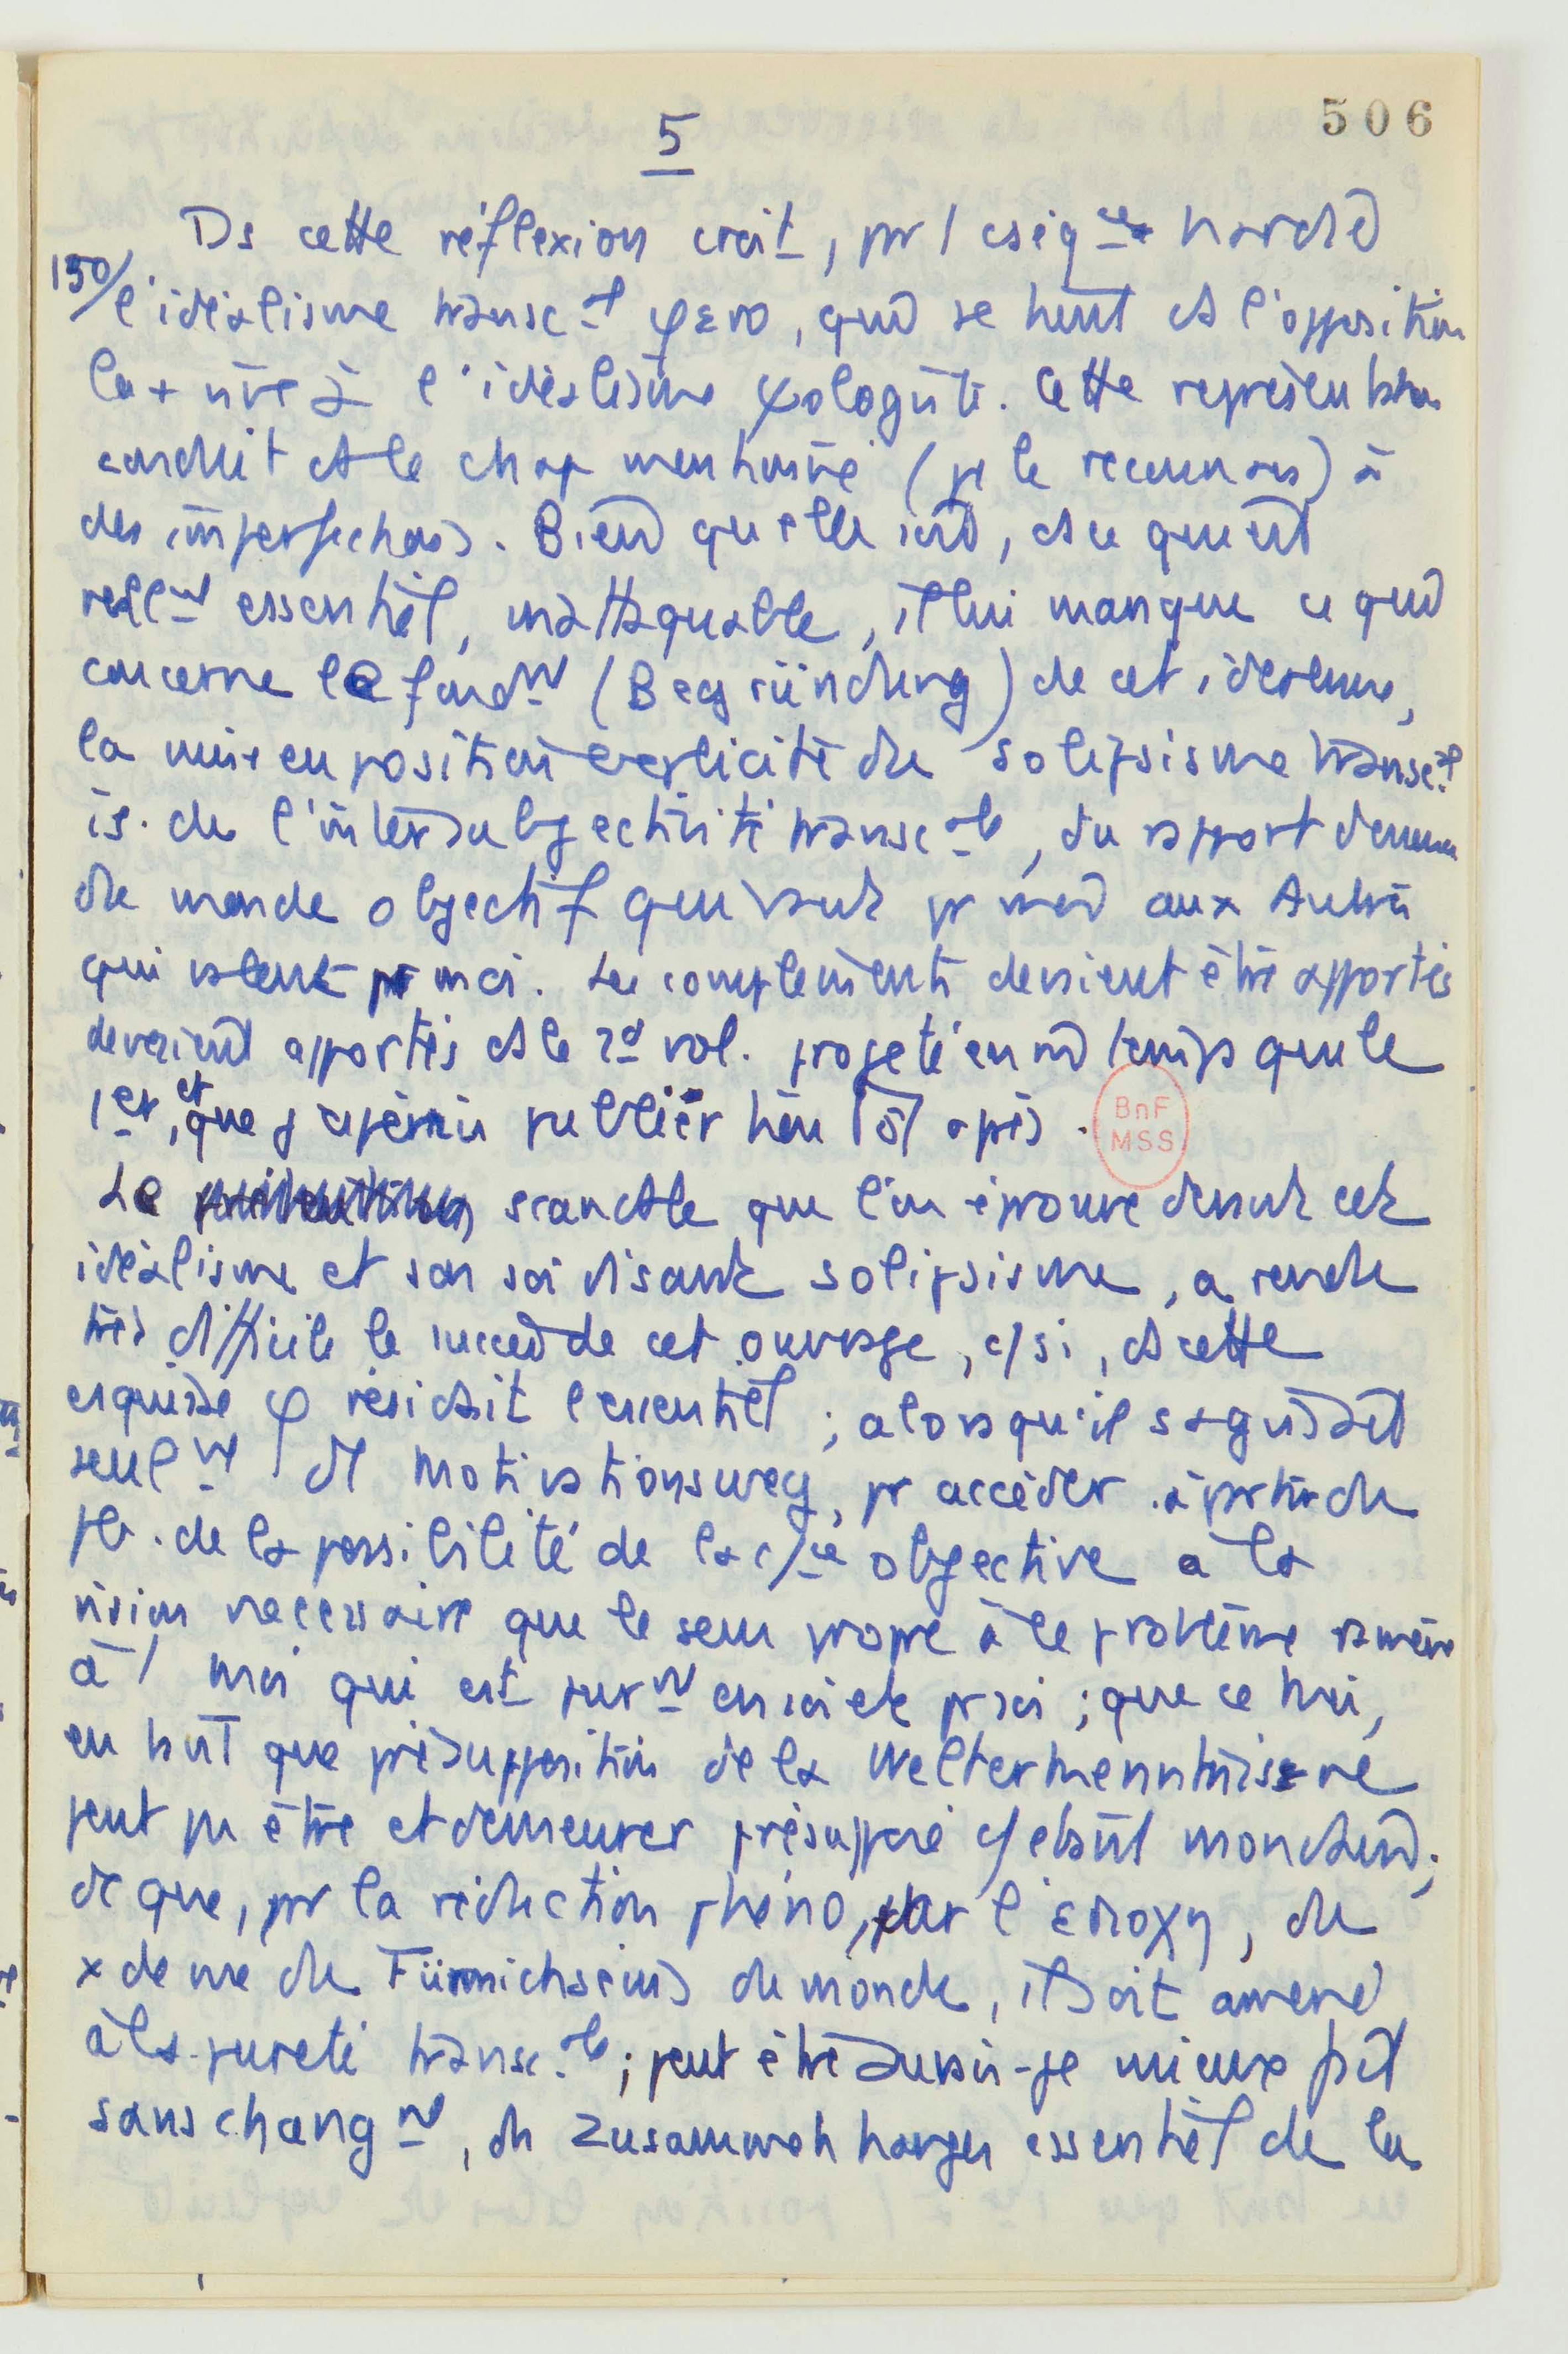 506
5
Ds cette réflexion croit, pr 1 cséq
150/ l'idéalisme transc-al φéno, qui se tient ds l'opposition
la + vive à l'idéalisme ψologiste. Cette représentation
conduit ds le chap mentionné (je le reconnais) à
des imperfections. Bien qu'elle soit, ds ce qui est
réell-nt essentiel, inattaquable, il lui manque ce qui
concerne le fond-nt (Begründung) de cet idéalisme,
la mise en position explicite du solipsisme transc-al
de l'intersubjectivité transc-ale, du rapport
du monde objectif qui vaut pr moi aux Autrui
qui valent pr moi. Les compléments devaient être apportés
devaient apportés ds le 2d vol. projeté en m̂ temps que le
1er, et que j'espérais publier tôt après.
BnF
MSS
Le scandale que l'on éprouve devant cet
idéalisme et son soi disant solipsisme, a rendu
très difficile le succès de cet ouvrage, c/ si, ds cette
esquisse φ résidait l'essentiel ; alors qu'il s'agissait
seul-nt d'1 Motivationsweg, pr accéder à partir du
pb. de la possibilité de la c/ce objective à la
vision nécessaire que le sens propre à le problème ramène
à 1 moi qui est pur-nt en soi et pr soi ; que ce moi,
en tant que présupposition de la Welterkenntnis ne
peut pu être et demeurer présupposé c/ étant mondain ;
dc que, pr la réduction phéno, par l'εποχη, du
x de me du Fürmichseins du monde, il soit amené
à la pureté transc-ale ; peut être aurais-je mieux fait
sans chang-nt, du Zusammenhangen essentiel de la